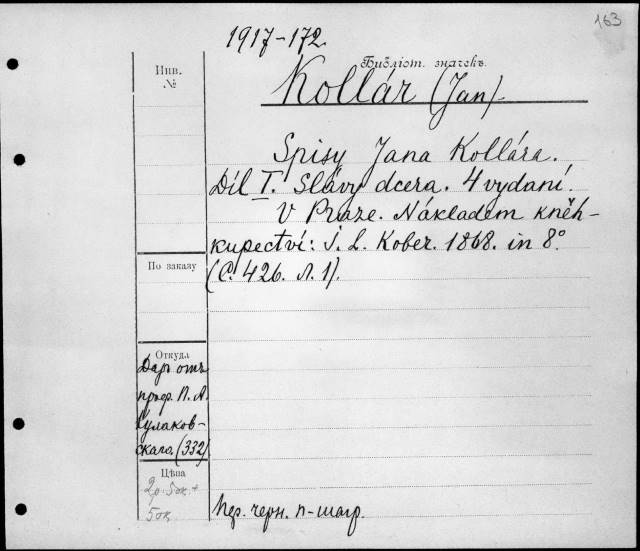 163
1917-172
Библіот. значекъ.
Инв.
№
Kollár (Jan).
Spisy Jana Kollára.
Díl I. Slávy dcera. 4 vydaní.
V Praze. Nákladem kněh-
kupectví: I. L. Kober. 1868. in 8°.
(С. 426. Л. 1).
По заказу
Откуда
Даръ отъ
проф. П. А.
Кулаков-
скаго. (332)
Цѣна
2р. 50к. +
50к.
Пер. черн. п-шагр.